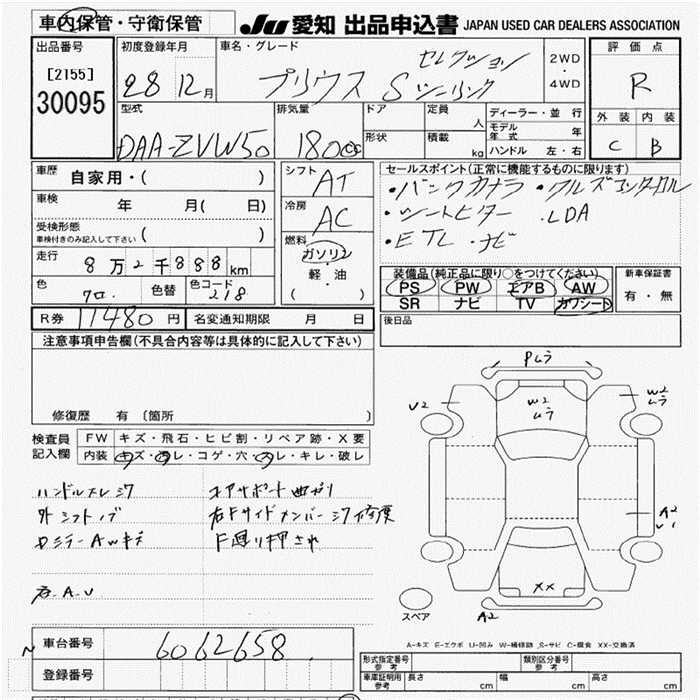 車内保管・守衛保管
JU 愛知 出品申込書 JAPAN USED CAR DEALERS ASSOCIATION
出品番号
[2155]
30095
初度登録年月
28 12月
車名・グレード
プリウス Sツーリング セレクション
2WD
・
4WD
評価点
R
外装 内装
C B
型式
DAA-ZVW50
排気量
1800cc
ドア
形状
定員 人
積載 kg
ディーラー・並行
モデル年式 年
ハンドル 左・右
車歴
自家用・( )
車検 年 月( 日)
受検形態
車検付きのみ記入して下さい ( )
走行
8万2千888km
色
クロ
色替
色コード
218
シフト
AT
冷房
AC
燃料
ガソリン
・
軽・油
( )
セールスポイント(正常に機能するものに限ります)
・バックカメラ ・クルーズコントロール
・シートヒーター ・LDA
・ETC ・ナビ
装備品(純正品に限り○をつけてください)
PS PW エアB AW
SR ナビ TV カワシート
新車保証書
有・無
R券 11480円 名変通知期限 月 日
後日品
注意事項申告欄(不具合内容等は具体的に記入して下さい)
修復歴 有 〔箇所
検査員
記入欄
FW キズ・飛石・ヒビ割・リペア跡・X要
内装 キズ・汚レ・コゲ・穴・スレ・キレ・破レ
ハンドルスレシワ
外シフトノブ
Rミラー AWキズ
コアサポート曲ガリ
右Fサイドメンバーシワ修復
F廻り押され
A.U
Pムラ
U2
W2
ムラ
W2
ムラ
A2
U1
XX
A2
スペア
A-キズ E-エクボ U-凹み W-補修跡 S-サビ C-腐食 XX-交換済
車台番号
6062658
登録番号
形式指定番号
参考
類別区分番号
参考
車庫証明用
参考
長さ cm
幅 cm
高さ cm